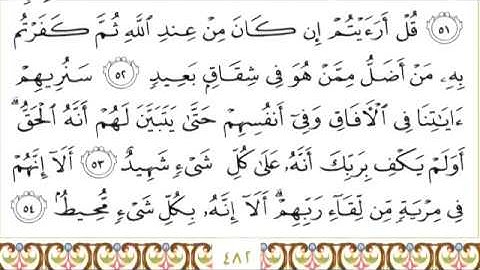 ﴿٥١﴾ قُلْ أَرَءَيْتُمْ إِن كَانَ مِنْ عِندِ اللَّهِ ثُمَّ كَفَرْتُم
بِهِۦ مَنْ أَضَلُّ مِمَّنْ هُوَ فِى شِقَاقٍۭ بَعِيدٍ ﴿٥٢﴾ سَنُرِيهِمْ
ءَايَٰتِنَا فِى الْأَفَاقِ وَفِىٓ أَنفُسِهِمْ حَتَّىٰ يَتَبَيَّنَ لَهُمْ أَنَّهُ الْحَقُّ ۗ
أَوَلَمْ يَكْفِ بِرَبِّكَ أَنَّهُۥ عَلَىٰ كُلِّ شَىْءٍ شَهِيدٌ ﴿٥٣﴾ أَلَآ إِنَّهُمْ
فِى مِرْيَةٍ مِّن لِّقَآءِ رَبِّهِمْ ۗ أَلَآ إِنَّهُۥ بِكُلِّ شَىْءٍ مُّحِيطٌۢ ﴿٥٤﴾
٤٨٢